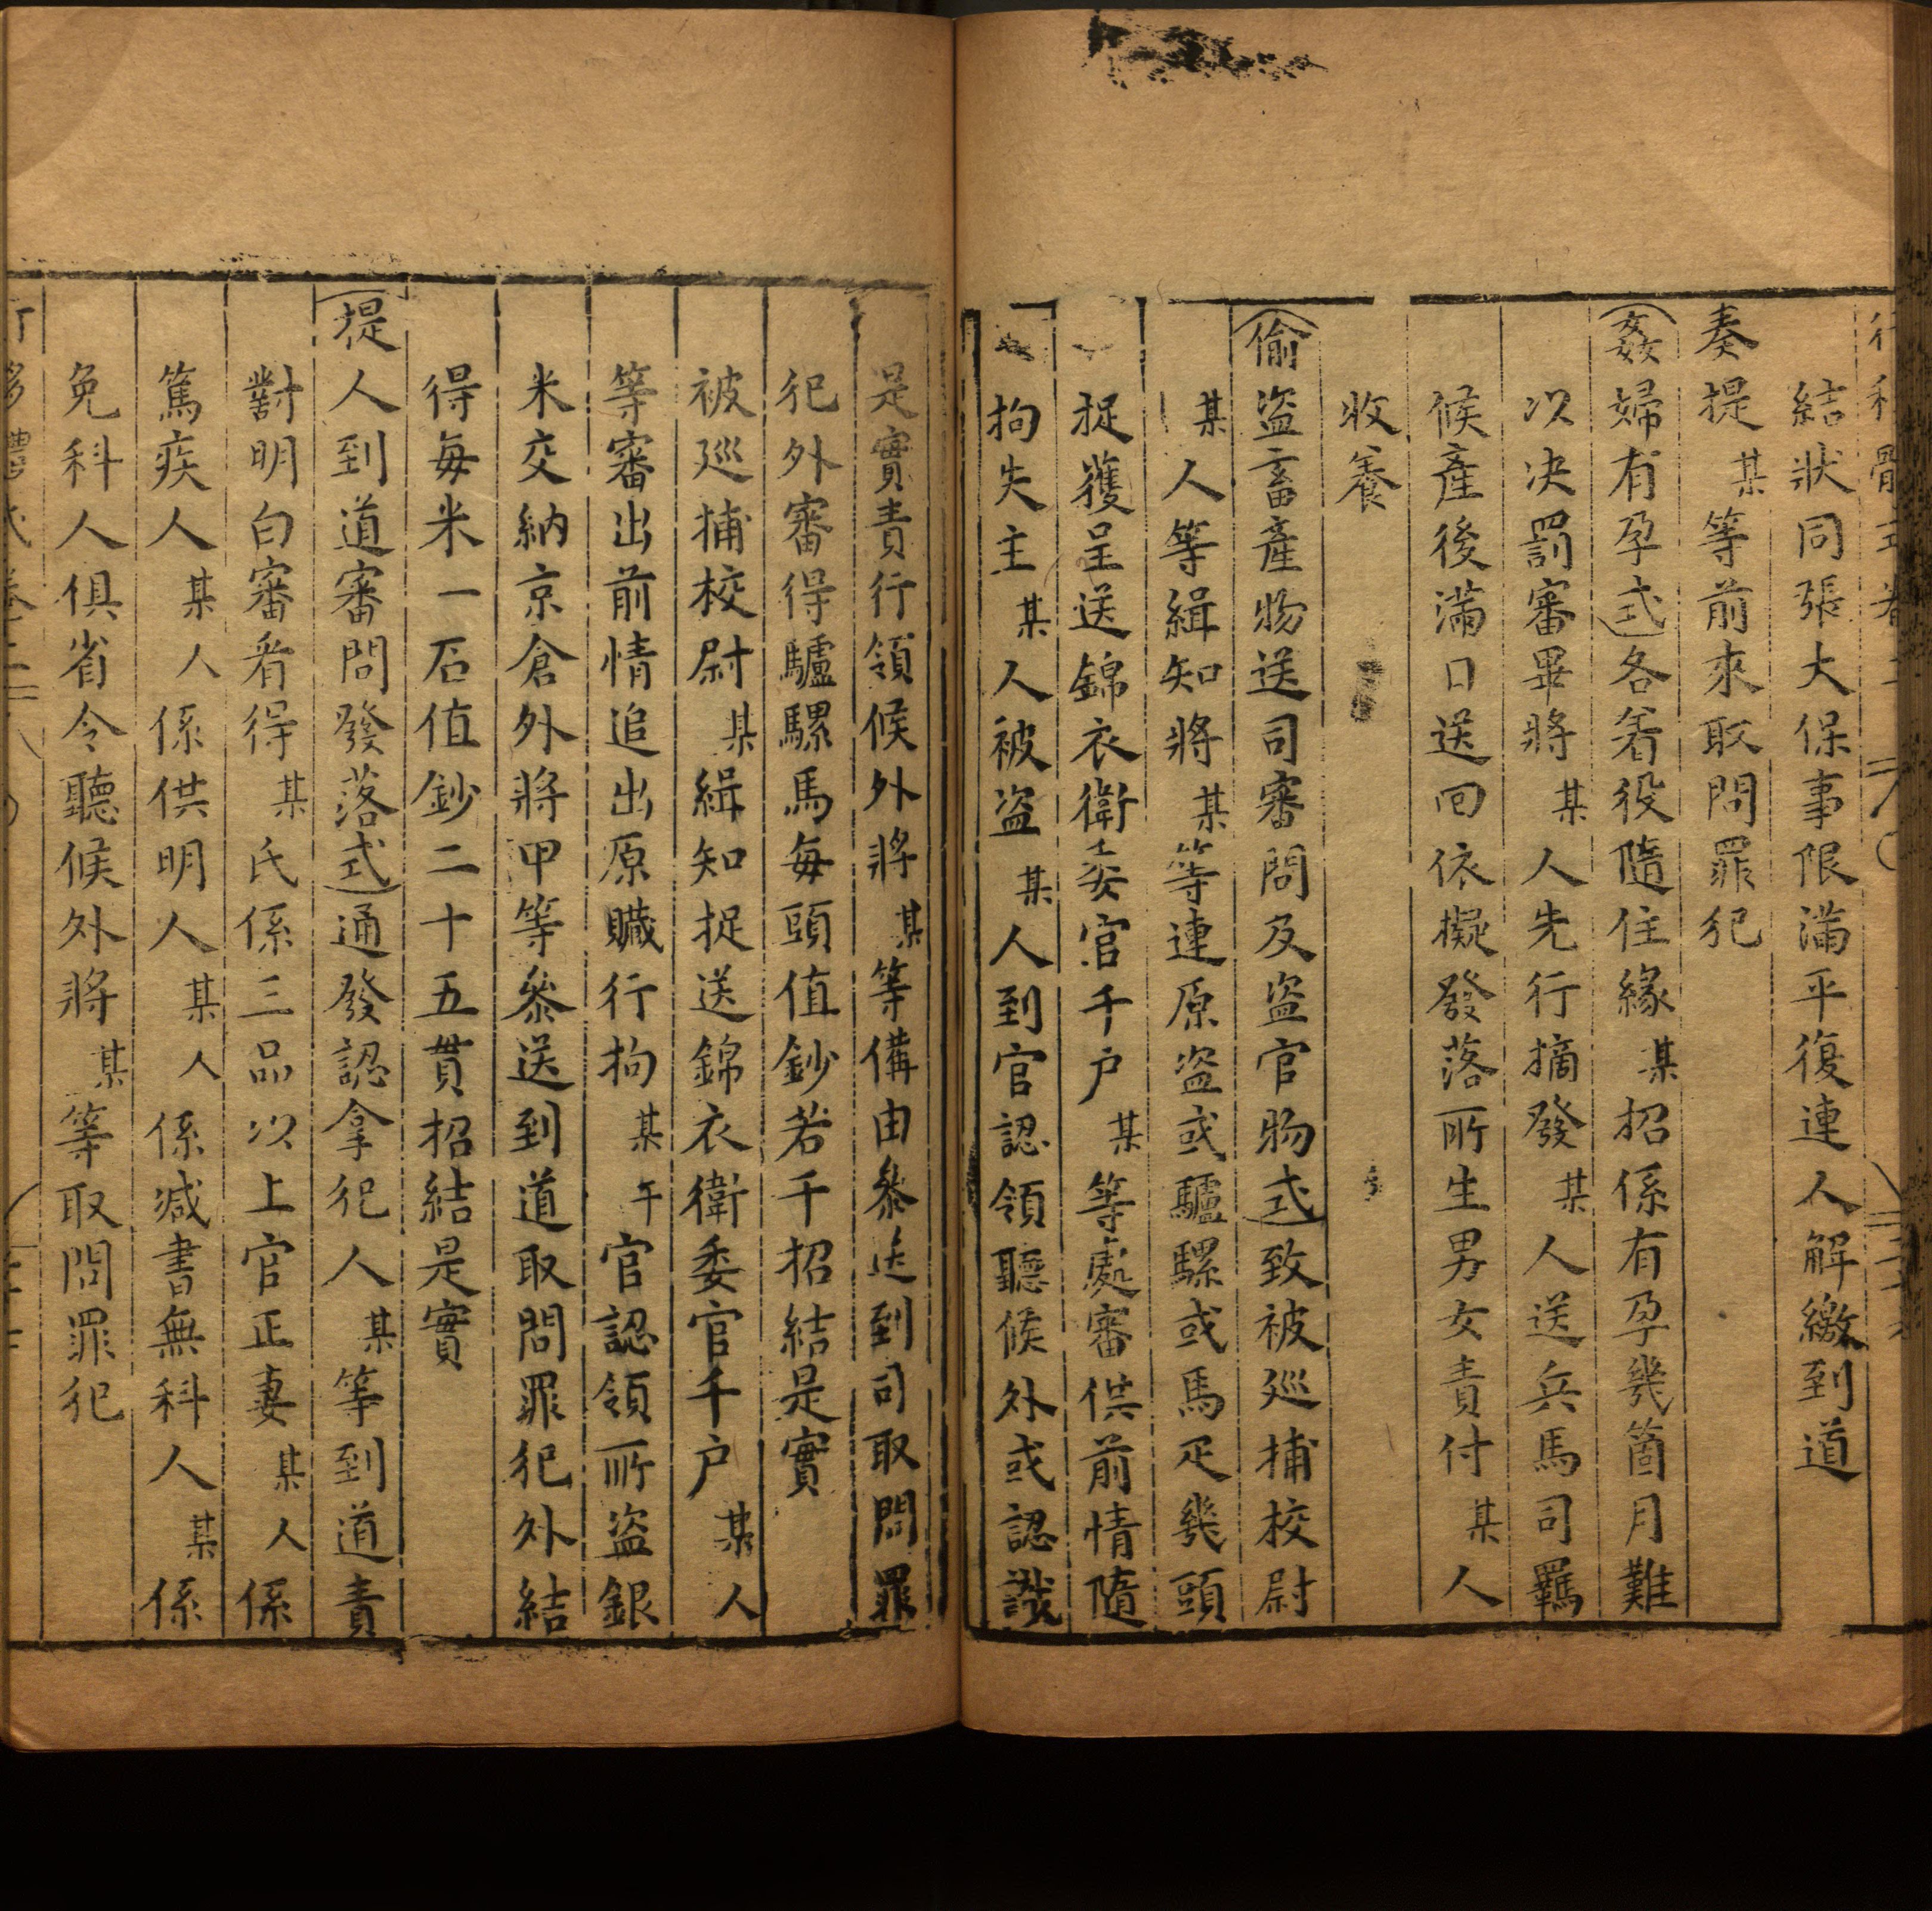 結狀同張大保事限滿平復連人解繳到道
奏提某等前來取問罪犯
姦婦有孕式各着役隨住緣某招係有孕幾箇月難
以决罰審畢將某人先行摘發某人送兵馬司羈
候產後滿日送回依擬發落所生男女責付某人
收養
偷盗畜產物送司審問及盗官物式致被廵捕校尉
某人等緝知將某等連原盗或驢騾或馬疋幾頭
捉獲呈送錦衣衛委官千户某等處審供前情隨
拘失主某人被盗某人到官認領聽候外或認識
是實責行領候外將某等備由叅送到司取問罪
犯外審得驢騾馬每頭值鈔若干招結是實
被廵捕校尉某緝知捉送錦衣衛委官千户某人
等審出前情追出原贓行拘某午官認領所盗銀
米交納京倉外將甲等叅送到道取問罪犯外結
得每米一石值鈔二十五貫招結是實
提人到道審問發落式通發認拿犯人某等到道責
對明白審看得某氏係三品以上官正妻某人係
篤疾人某人係供明人某人係减書無科人某係
免科人俱省令聽候外將某等取問罪犯